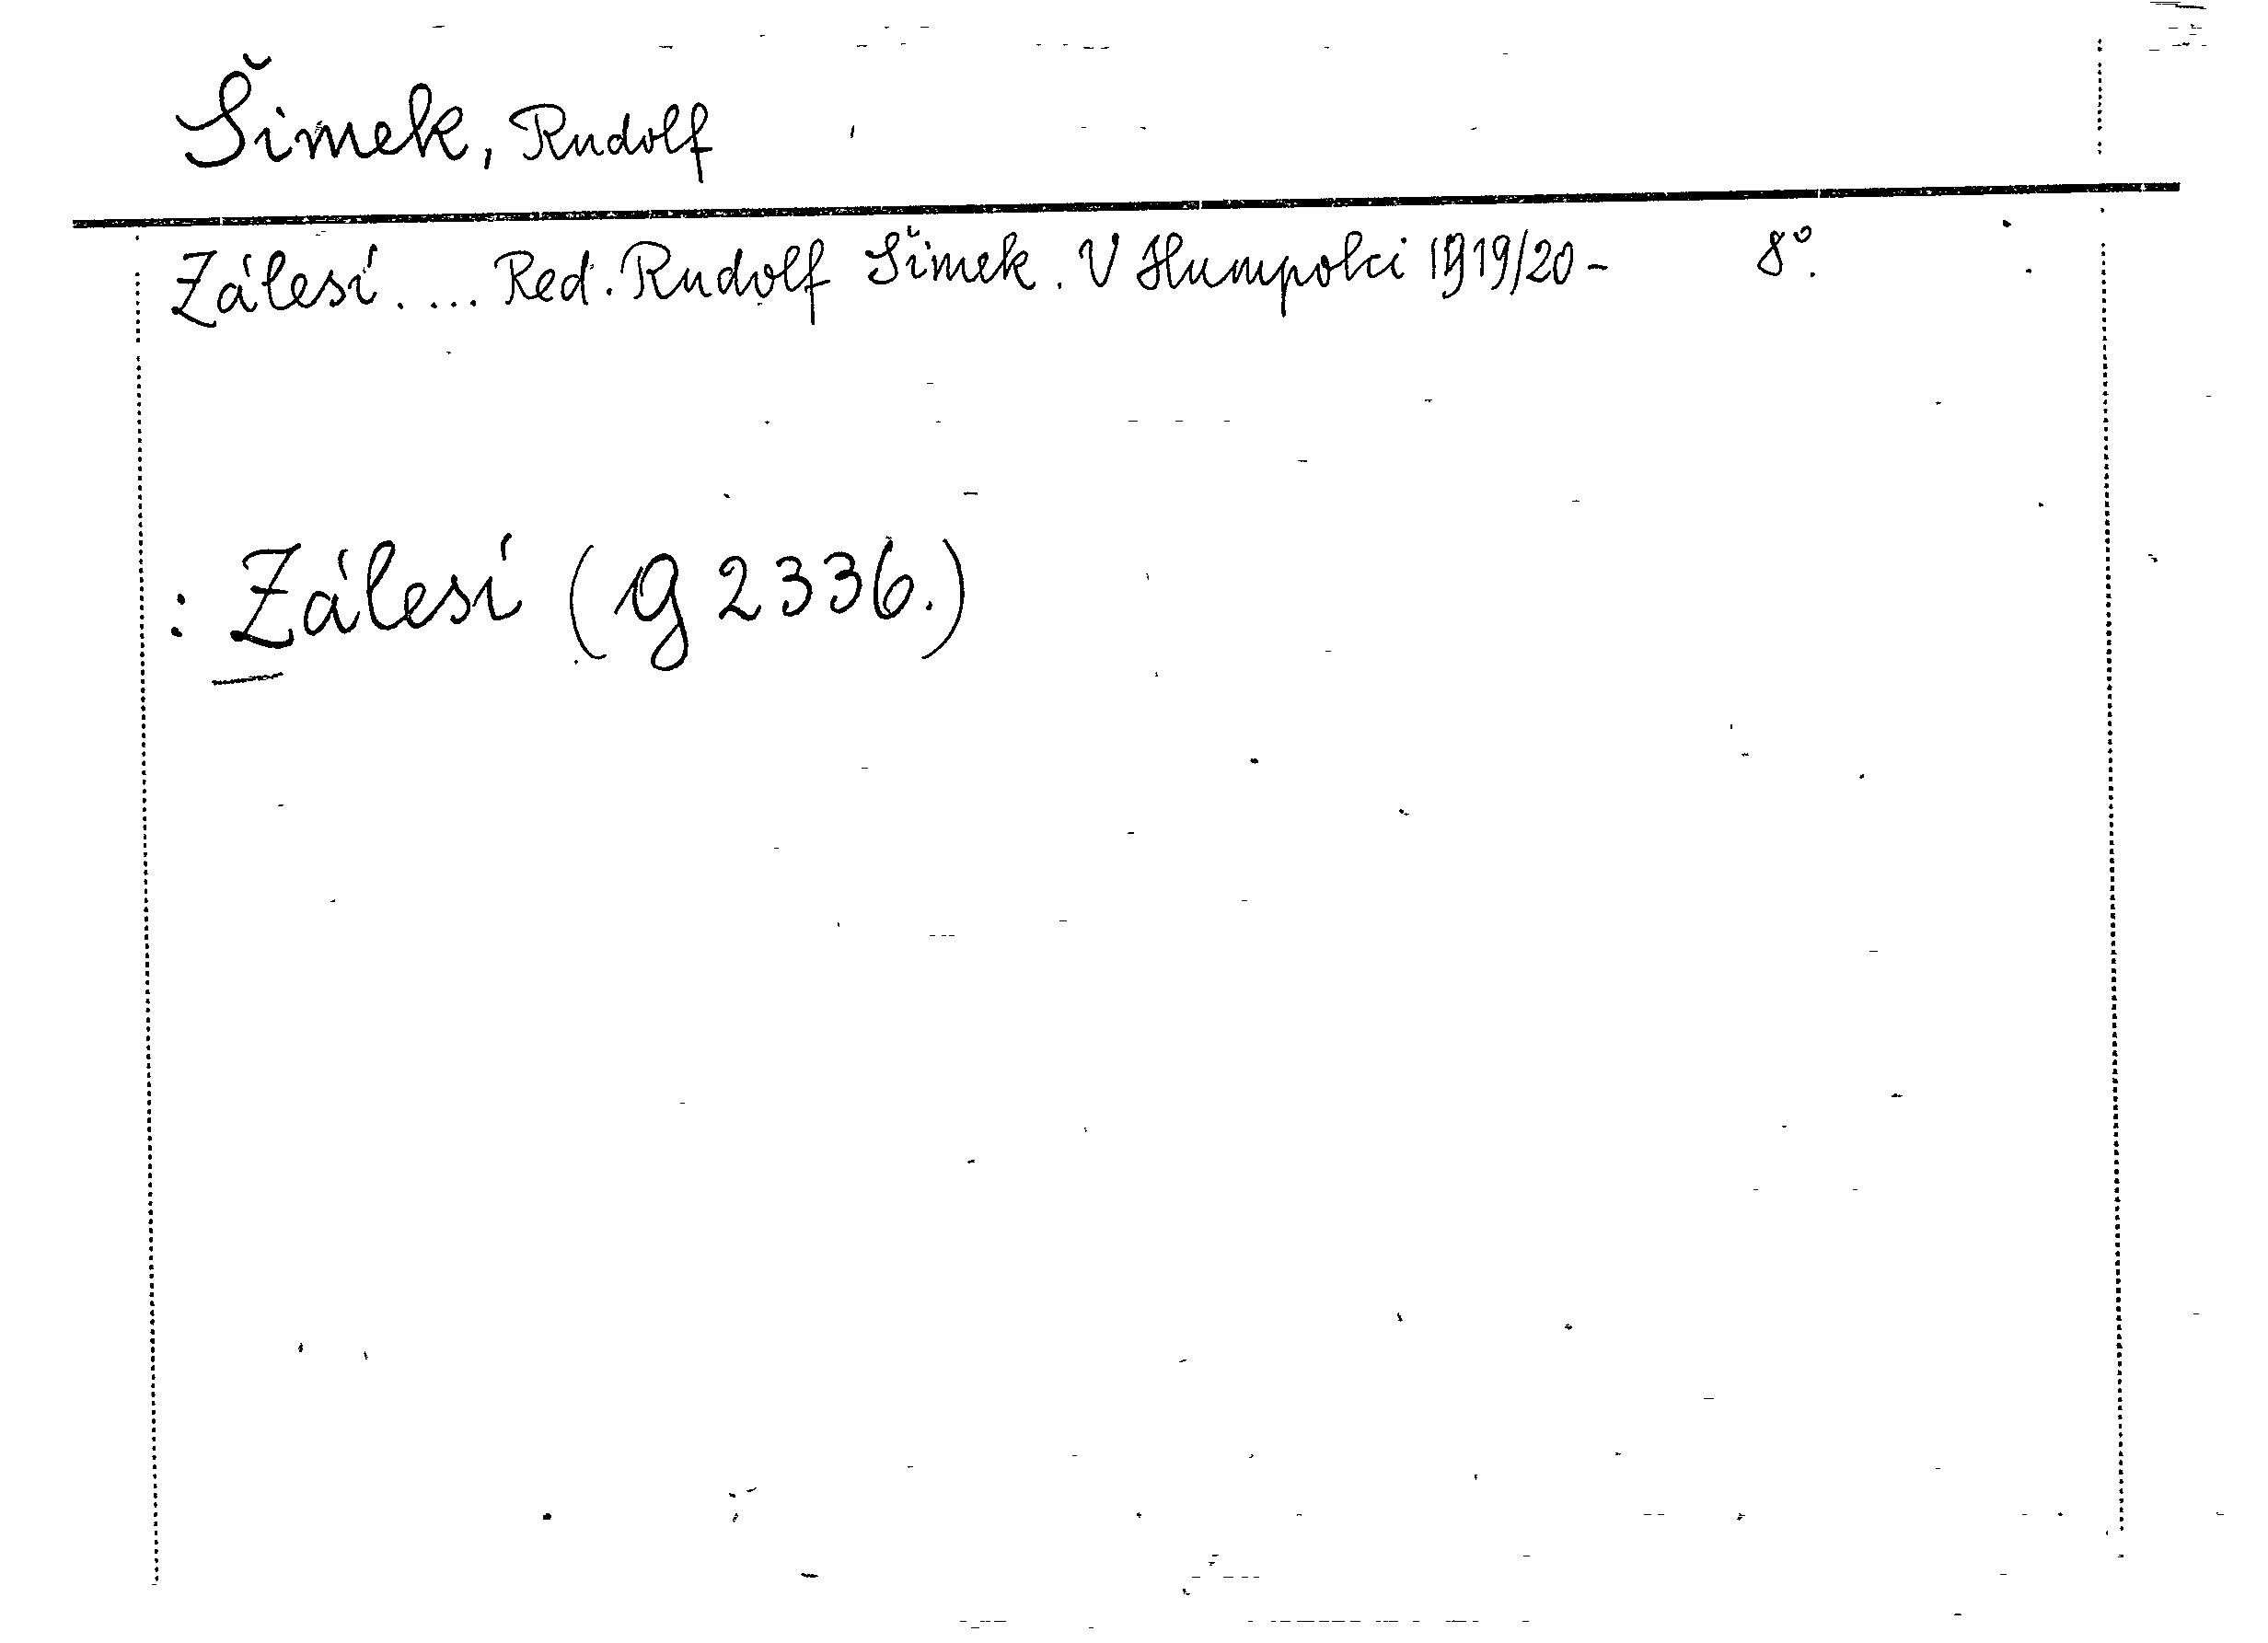 Šimek, Rudolf
Zálesí. ... Red. Rudolf Šimek. V Humpolci 1919/20- 8°.
: Zálesí (g 2336.)